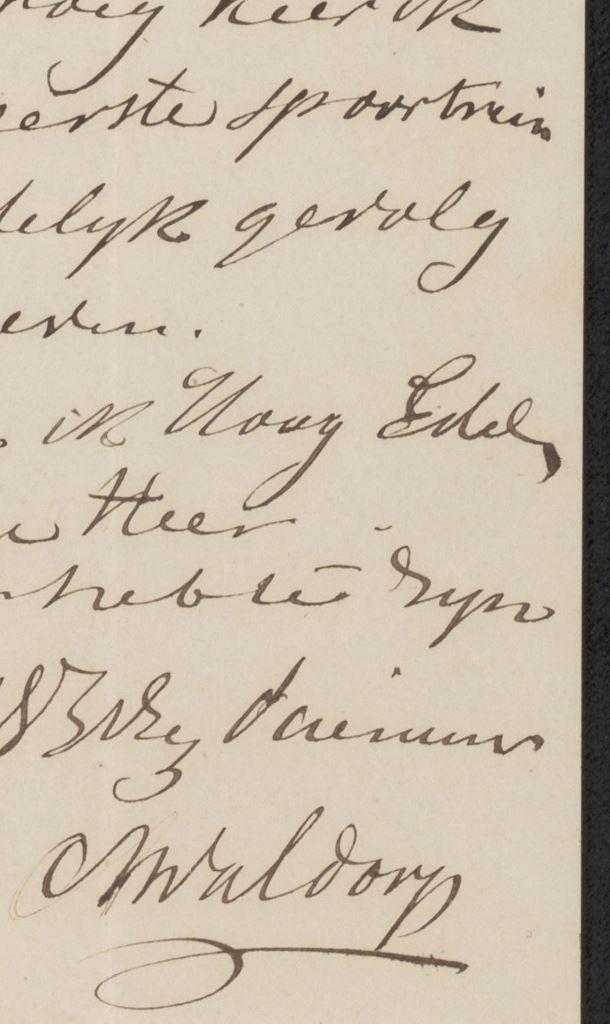 keer ik
eerste spoortrein
delyk gevolg
even.
ik Hoog Edel,
Heer
hebbe zyn
dienaar
Waldorp